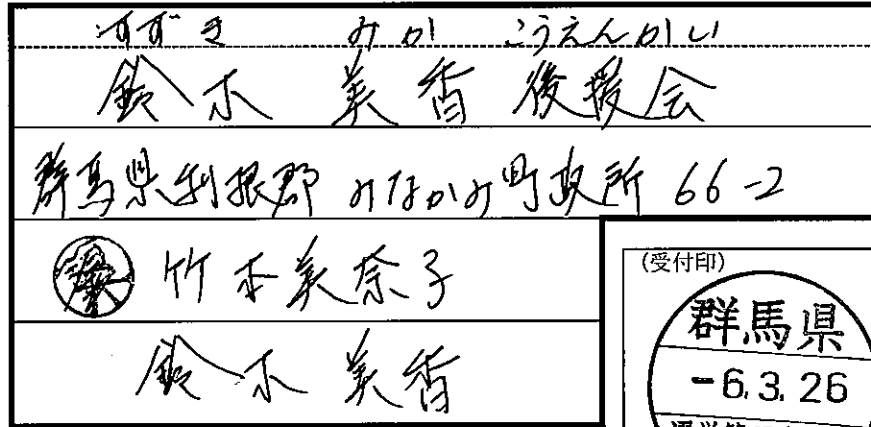 すずき みか こうえんかい
鈴木 美香 後援会
群馬県利根郡 みなかみ町政所 66-2
竹本美奈子
鈴木 美香
(受付印)
群馬県
-6.3.26